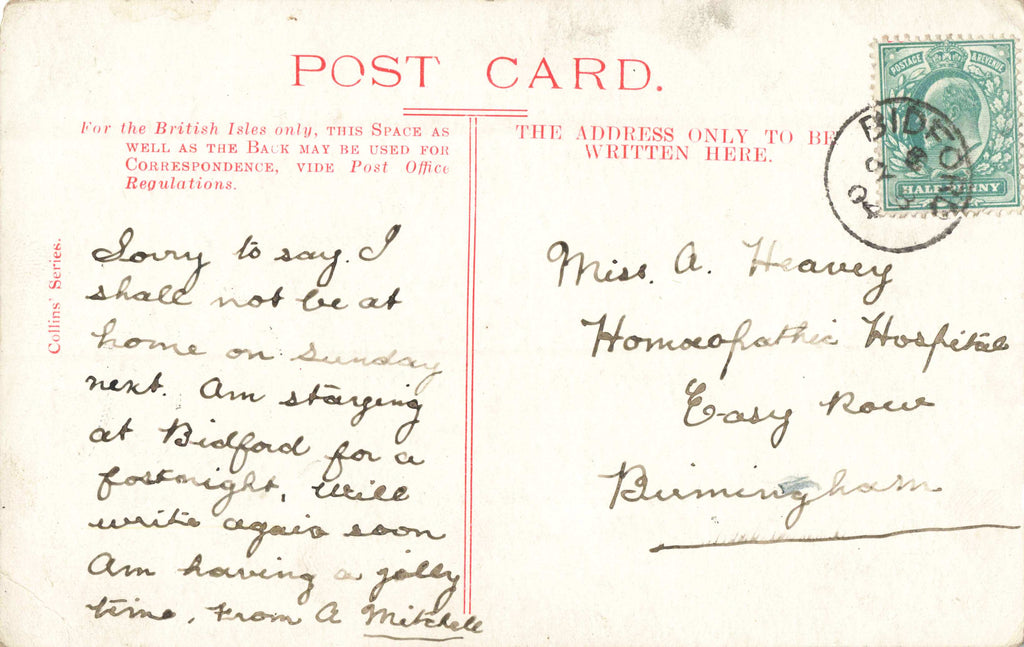 POST CARD.
For the British Isles only, THIS SPACE AS
WELL AS THE BACK MAY BE USED FOR
CORRESPONDENCE, VIDE Post Office
Regulations.
THE ADDRESS ONLY TO BE
WRITTEN HERE.
POSTAGE & REVENUE
HALFPENNY
BIDFORD
Collins' Series.
Sorry to say. I
shall not be at
home on Sunday
next. Am staying
at Bidford for a
fortnight, Will
write again soon
Am having a jolly
time. From A Mitchell
Miss. A. Heavey
Homoeopathic Hospital
Easy Row
Birmingham